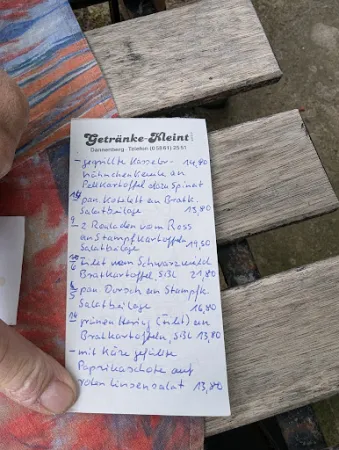 Getränke-Kleint
Dannenberg Telefon (0 58 61) 25 51
- gegrillte Kasseler- 14,80
hähnchenkeule an
Pellkartoffel dazu Spinat
pan. Kotelett an Bratk.
Salatbeilage 13,80
2 Rouladen vom Ross
an Stampfkartoffeln
Salatbeilage 19,50
Filet vom Schwarzwald
Bratkartoffel, SiBL 21,80
pan. Dorsch an Stampfk.
Salatbeilage 16,80
grünen Hering (Filet) an
Bratkartoffeln, SiBL 13,80
- mit Käse gefüllte
Paprikaschote auf
roten Linsensalat 13,80